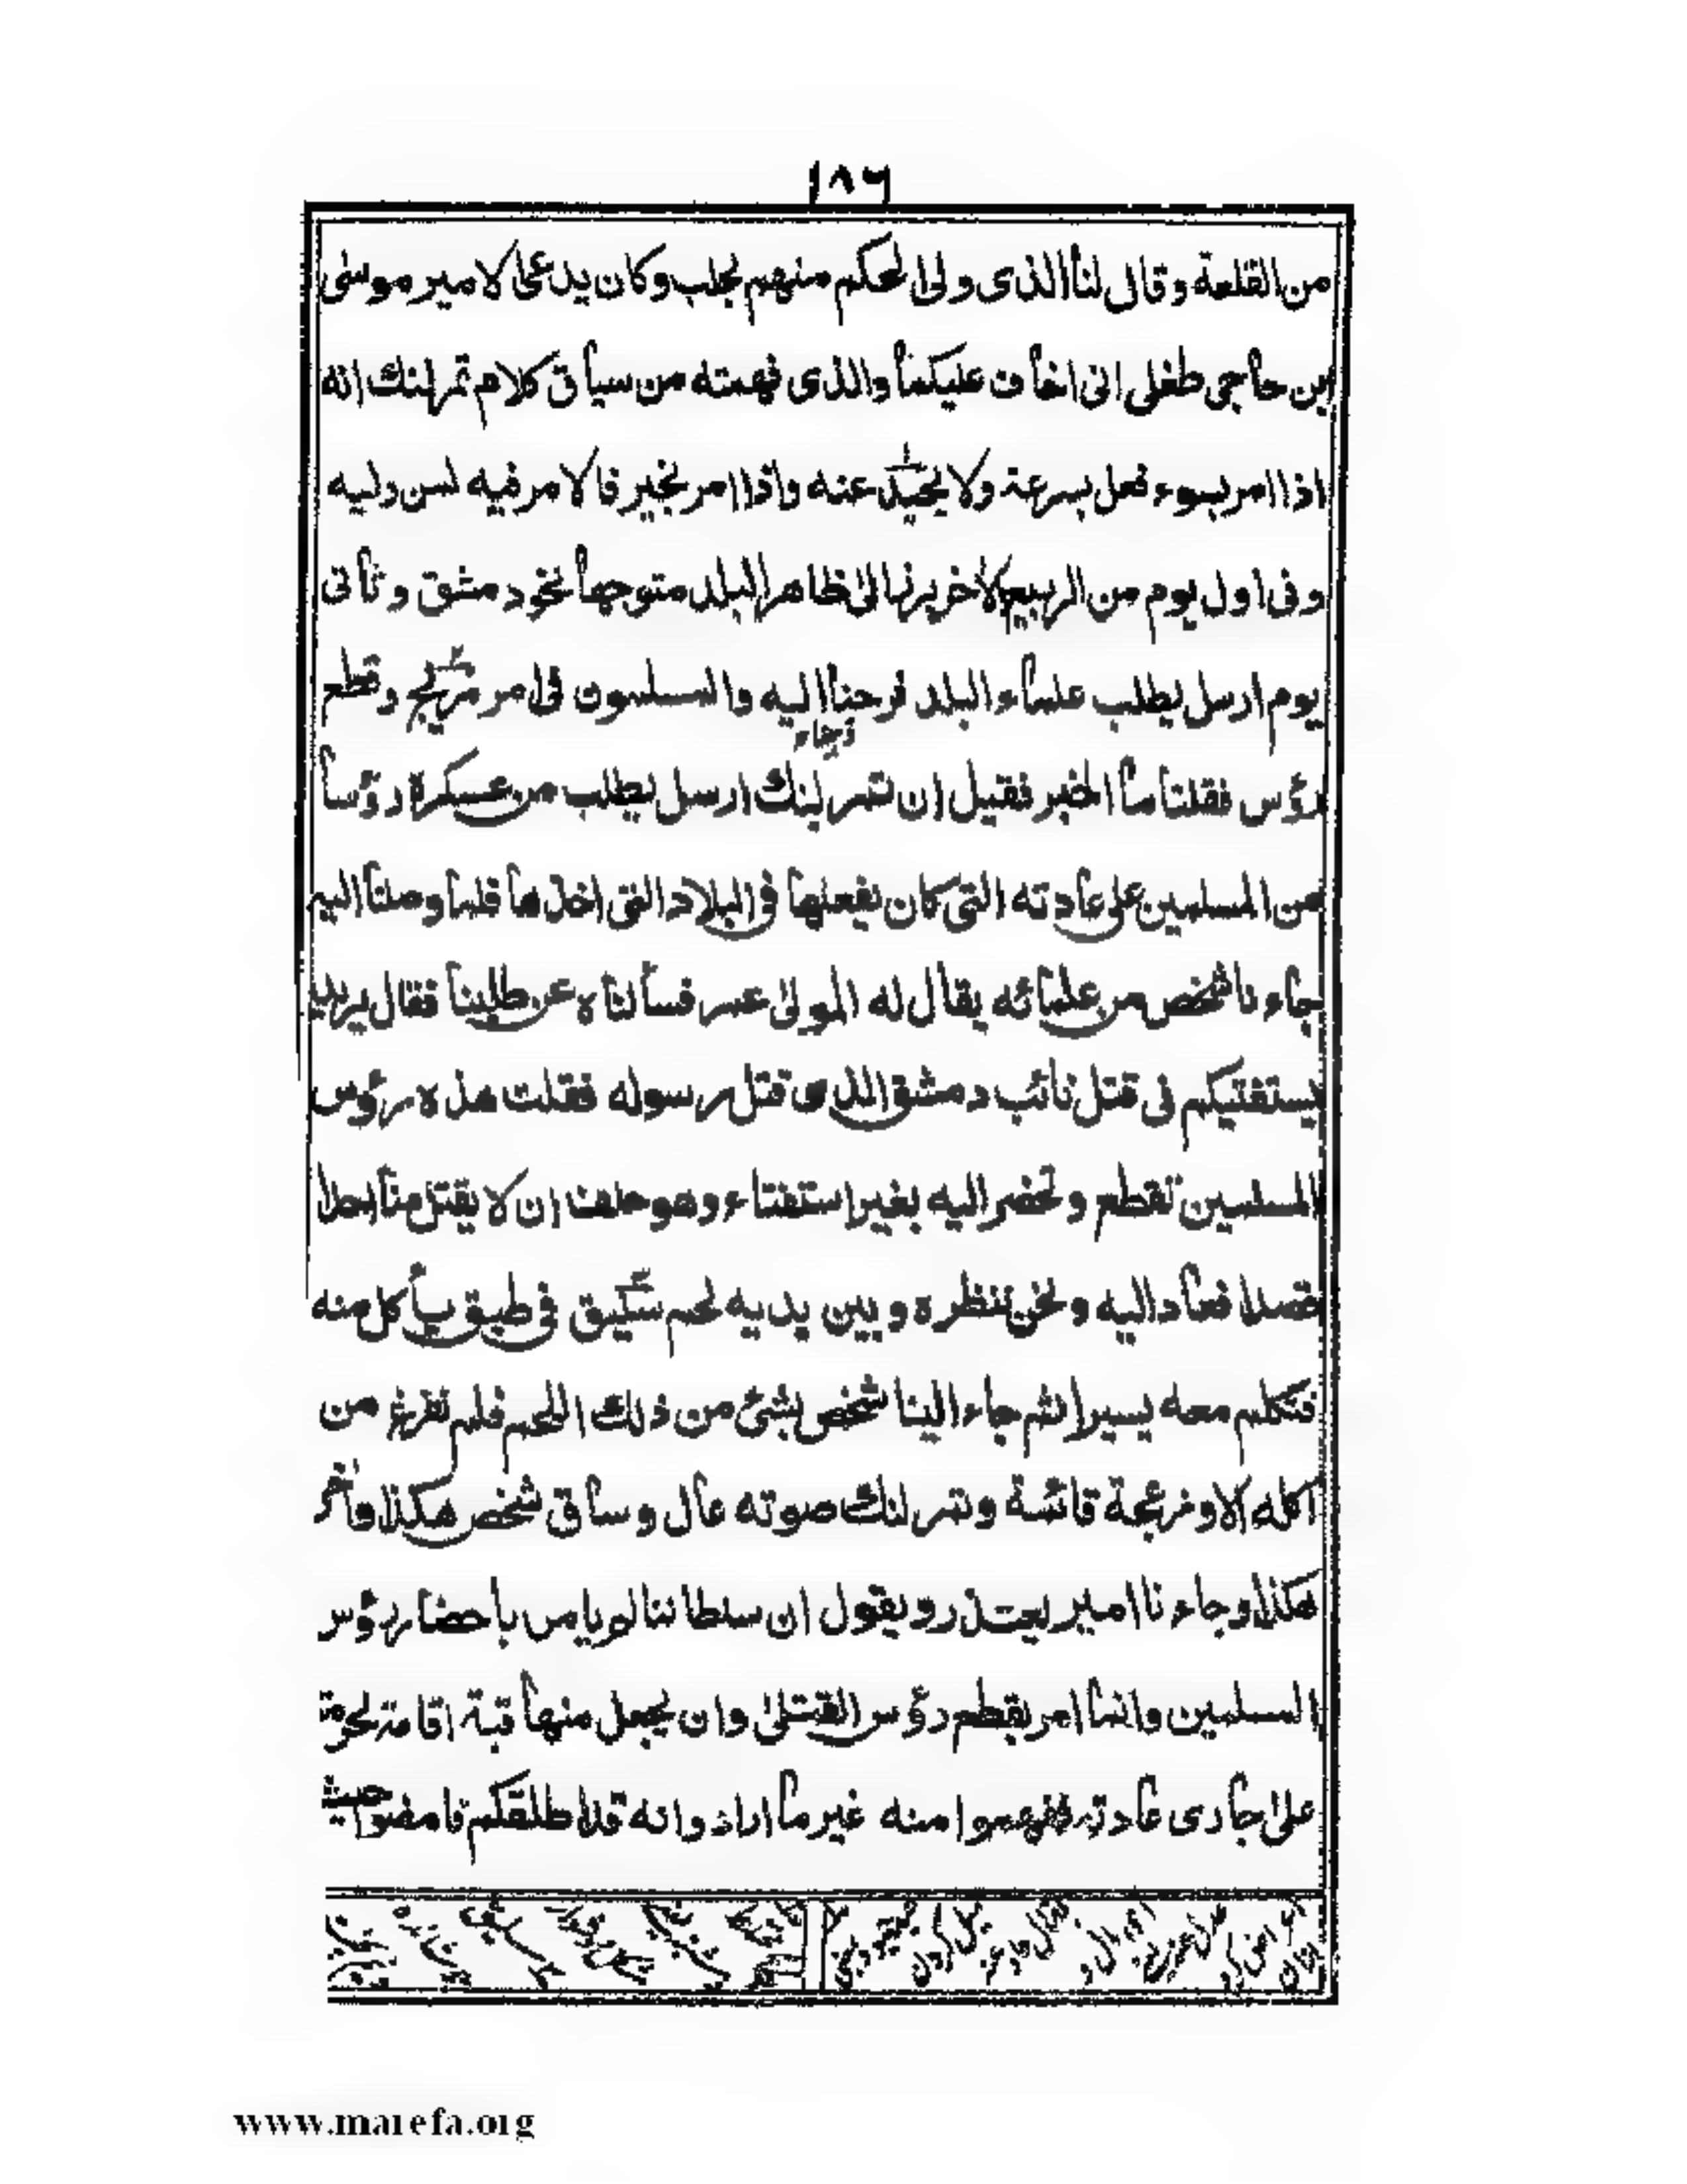 ١٨٦
من القلعة وقال لنا الذى ولى الحكم منهم بحلب وكان يدعى الامير موسى
بن حاجى طغلى انى اخاف عليكما والذى فهمته من سياق كلام تمرلنك انه
اذا امر بسوء فعل بسرعة ولا يحيد عنه واذا امر بخير فالامر فيه لمن وليه
وفى اول يوم من الربيع الاخر برزنا الى ظاهر البلد متوجها نحو دمشق وثانى
يوم ارسل يطلب علماء البلد فرحنا اليه والمسلمون فى امر مريج وقطع
رؤس فقلنا ما الخبر فقيل ان تمرلنك ارسل يطلب من عسكره رؤسا
من المسلمين على عادته التى كان يفعلها فى البلاد التى اخذها فلما وصلنا اليه
جاءنا شخص من علمائه يقال له المولى عمر فسألناه عن طلبنا فقال يريد
يستفتيكم فى قتل نائب دمشق الذى قتل رسوله فقلت هذه رؤس
المسلمين تقطع وتحضر اليه بغير استفتاء وهو حلف ان لا يقتل منا احدا
قصدا فعاد اليه ونحن ننظره وبين يديه لحم سليق فى طبق يأكل منه
فتكلم معه يسيرا ثم جاء الينا شخص بشئ من ذلك اللحم فلم نفرغ من
اكله الا وزعجة قائمة وتمرلنك صوته عال وساق شخص هكذا وآخر
هكذا وجاءنا امير يعتذر ويقول ان سلطاننا لم يامر باحضار رؤس
المسلمين وانما امر بقطع رؤس القتلى وان يجعل منها قبة اقامة لحرمته
على جارى عادته ففهموا منه غير ما اراد وانه قد اطلقكم فامضوا حيث
www.marefa.org